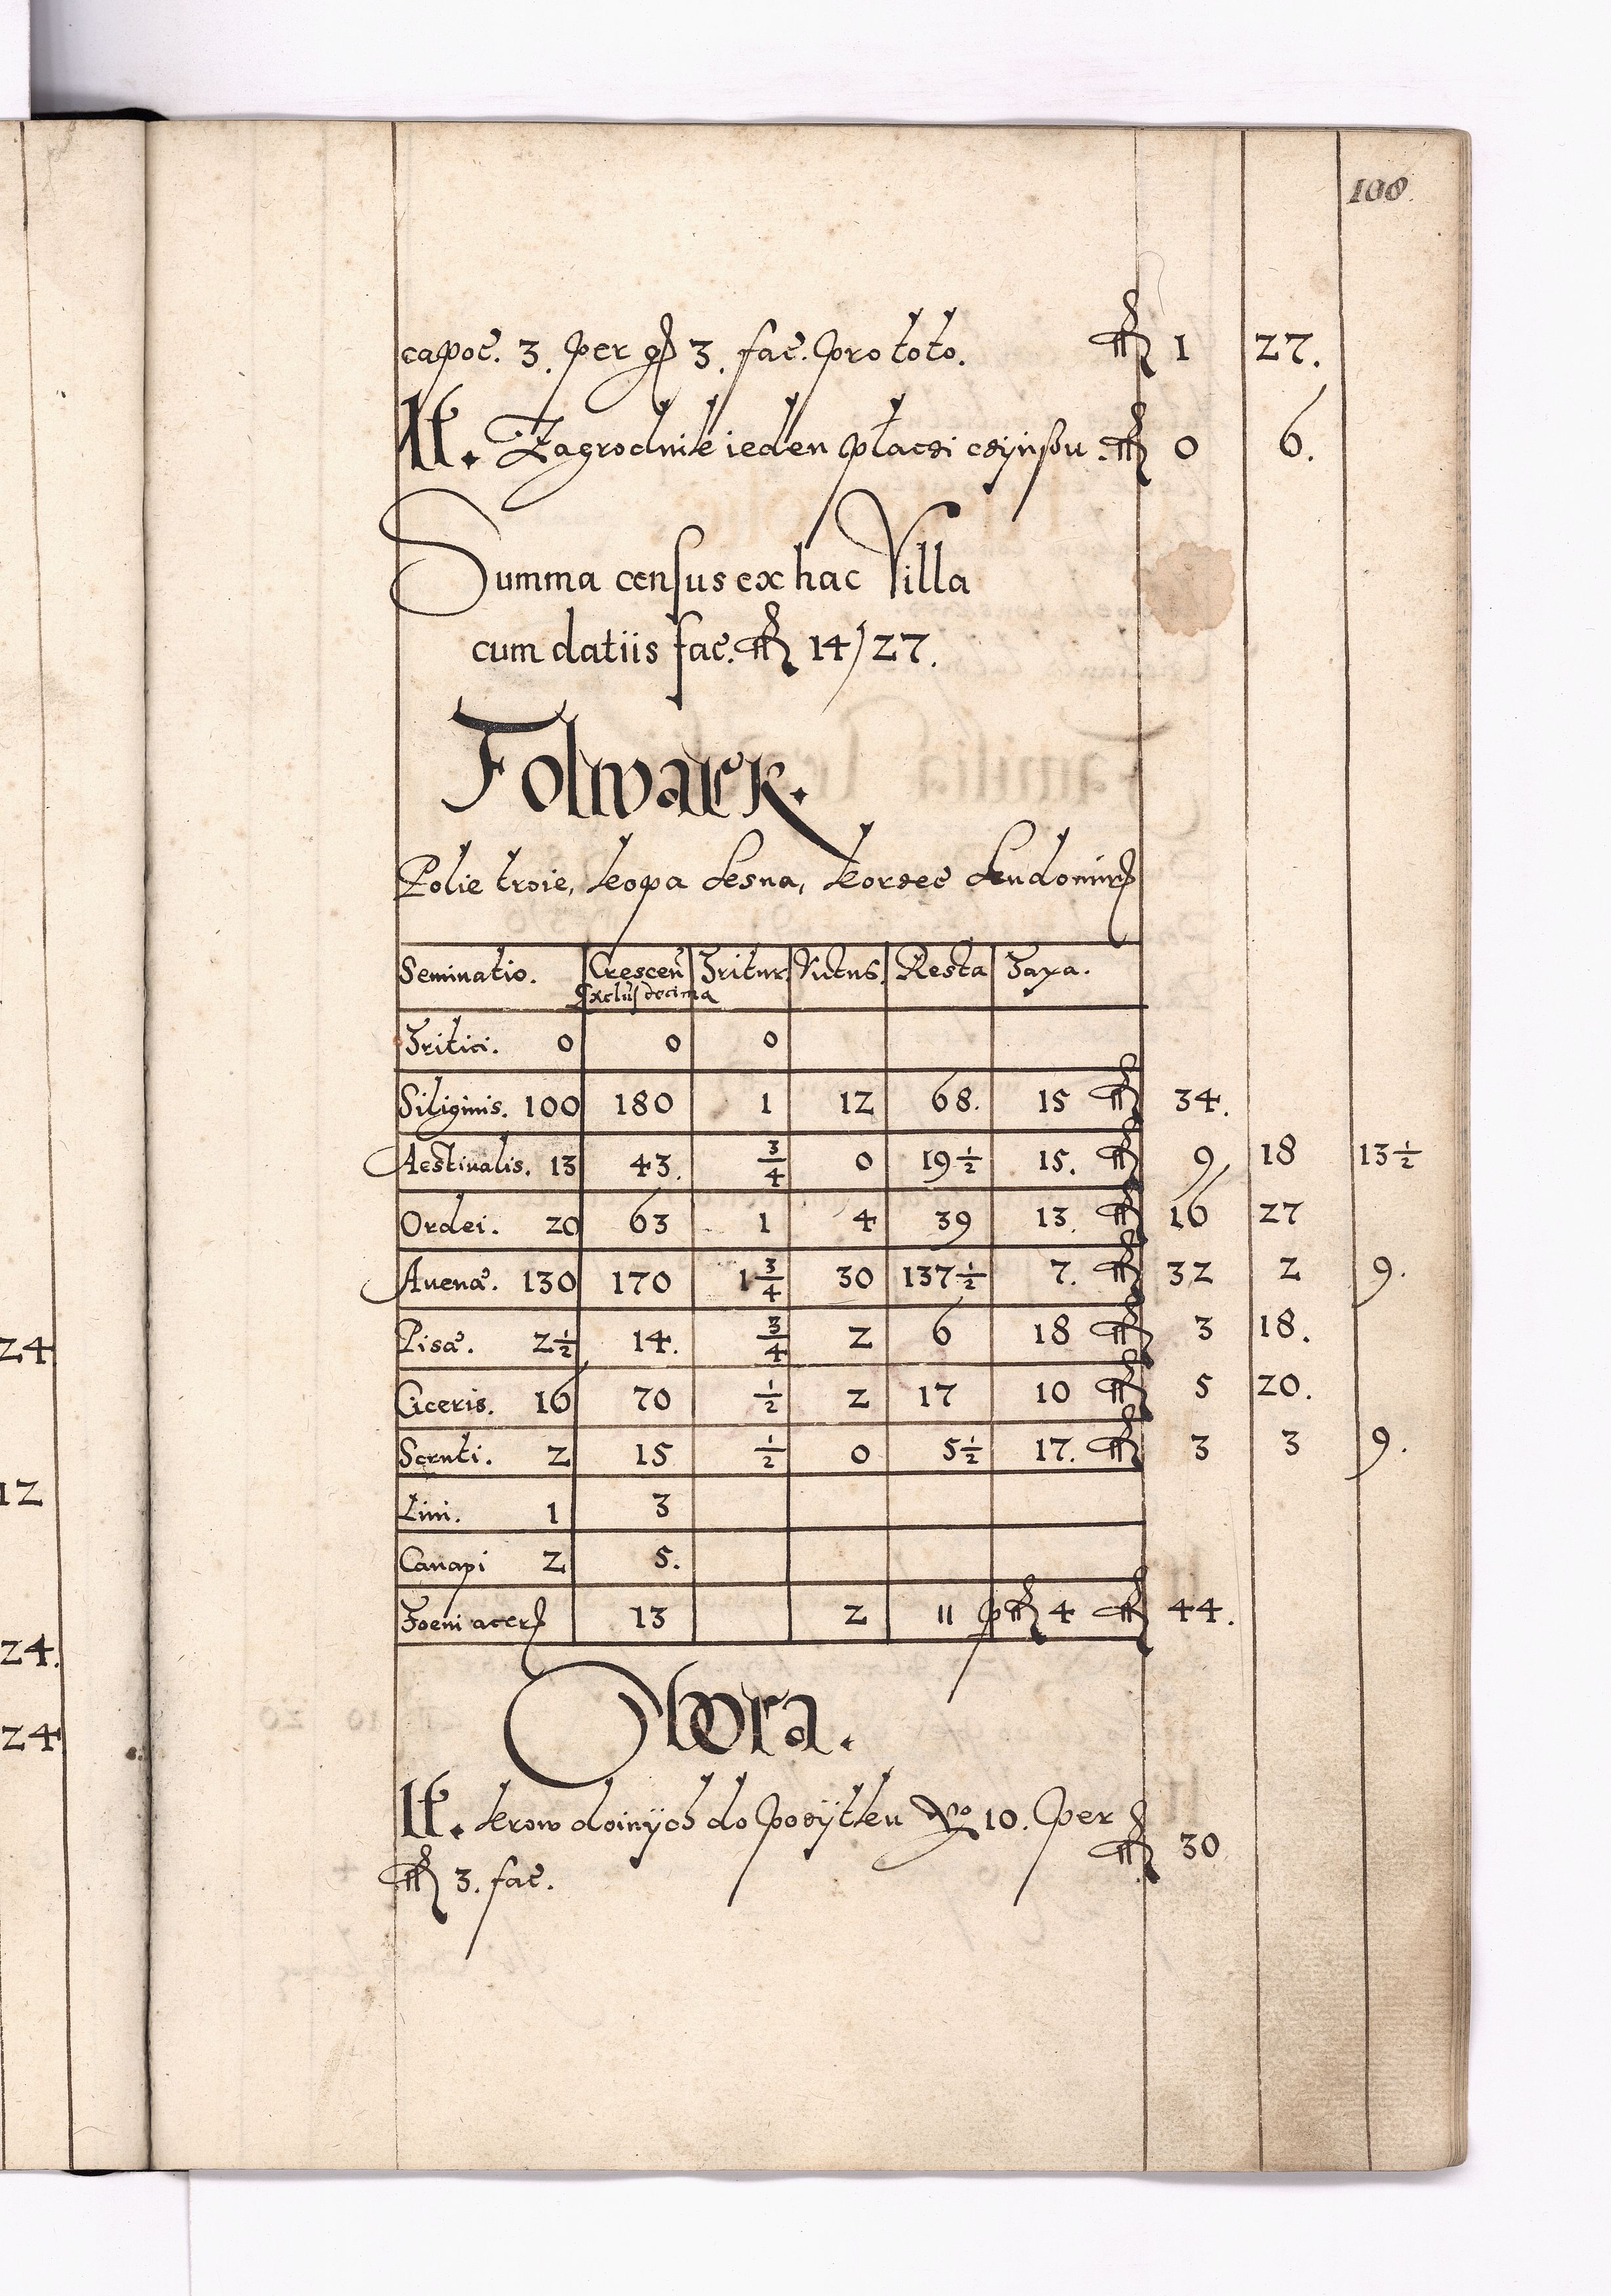 108.
capoč. 3. per gr 3. fac. pro toto. fl 1 27.
It. Zagrodnik ieden płaczi czÿnsзu. fl 0 6.
Summa census ex hac Villa
cum datiis fac. fl 14/27.
Folwark.
Polie troie, kopa Lesna, korzec Sendomir
Seminatio. Crescen̄ Tritur. Victus. Resta Taxa.
Exclus decima
Tritici. 0 0 0
Siliginis. 100 180 1 12 68. 15 fl 34.
Aestiualis. 13 43. 3/4 0 19 1/2 15. fl 9 18 13 1/2
Ordei. 20 63 1 4 39 13. fl 16 27
Auenæ. 130 170 1 3/4 30 137 1/2 7. fl 32 2 9.
Pisæ. 2 1/2 14. 3/4 2 6 18 fl 3 18.
Ciceris. 16 70 1/2 2 17 10 fl 5 20.
Scruti. 2 15 1/2 0 5 1/2 17. fl 3 3 9.
Lini. 1 3
Canapi 2 5.
Foeni acer 13 2 11 p fl 4 fl 44.
Obora.
It. krow doinÿch do pozÿtku No 10. per
fl 3. fac. fl 30
24
12
24.
24